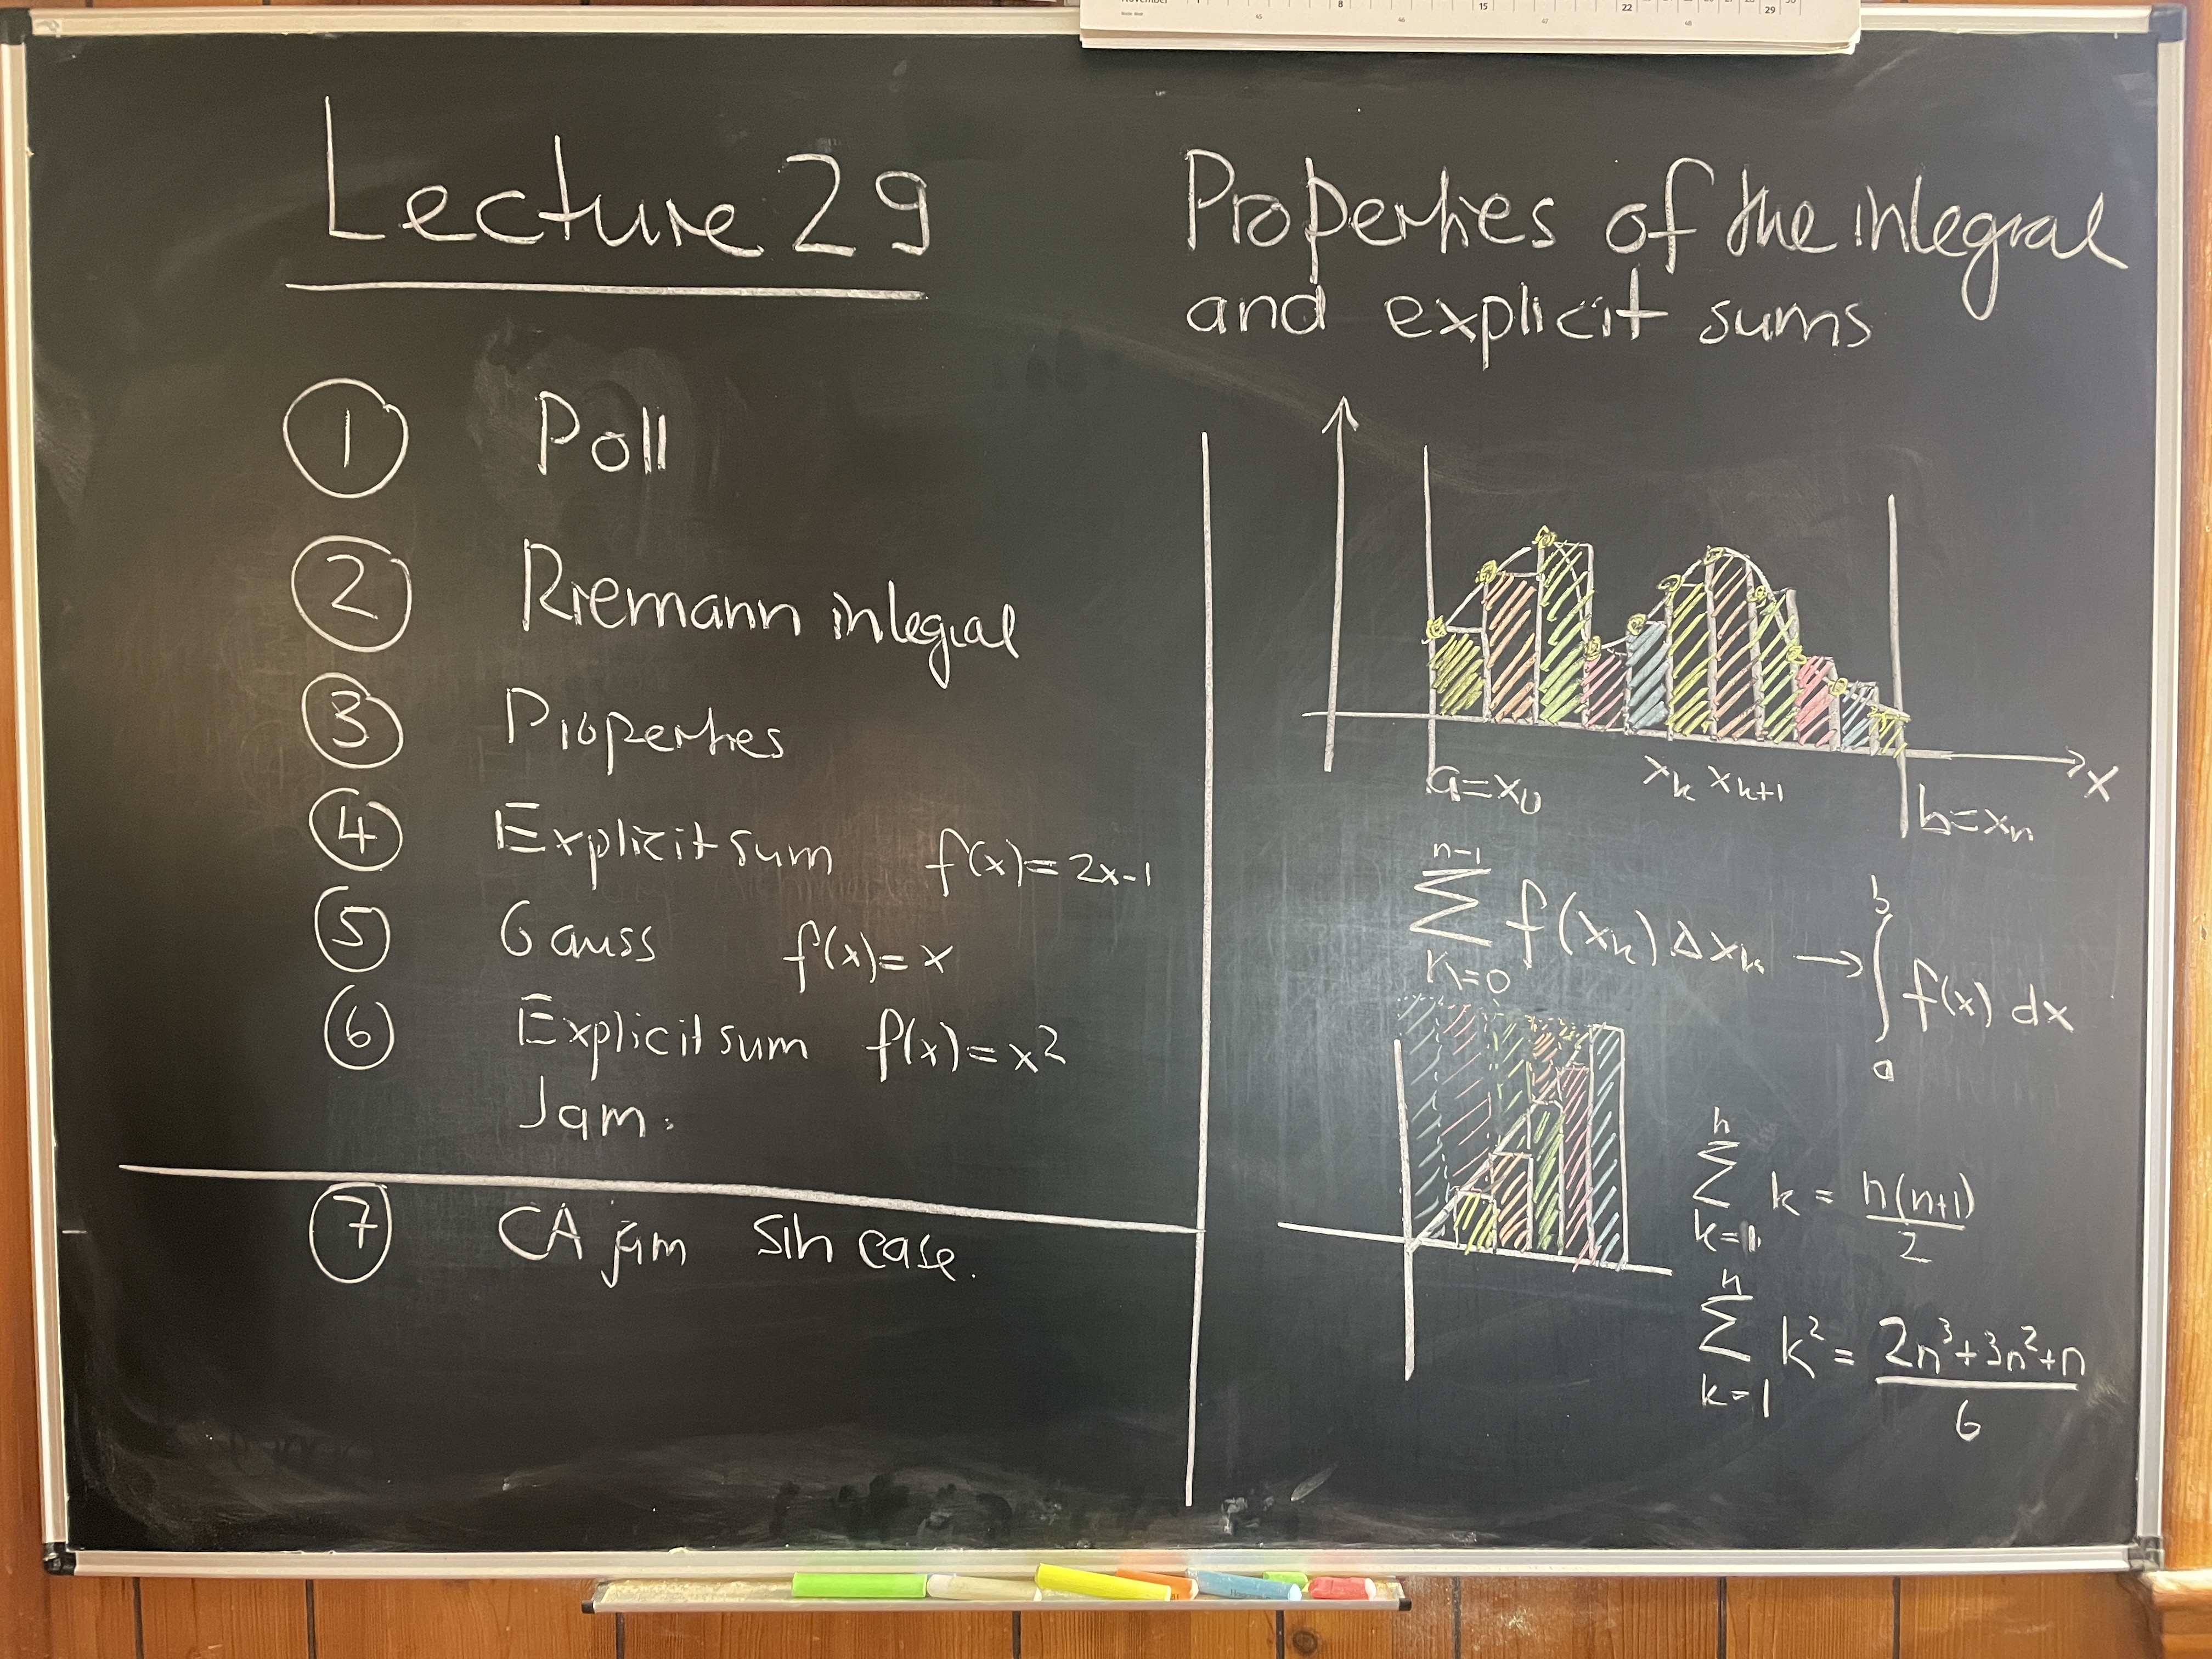 November 1 8 15 22 29
45 46 47 48
Lecture 29
Properties of the integral
and explicit sums
1 Poll
2 Riemann integral
3 Properties
4 Explicit sum f(x)=2x-1
5 Gauss f(x)=x
6 Explicit sum f(x)=x²
Jam.
7 CA jam sin case.
a=x₀ xₖ xₖ₊₁ x
b=xₙ
n-1
∑ f(xₖ) Δxₖ → ∫ₐᵇ f(x) dx
k=0
n
∑ k = n(n+1)/2
k=1
n
∑ k² = (2n³+3n²+n)/6
k=1